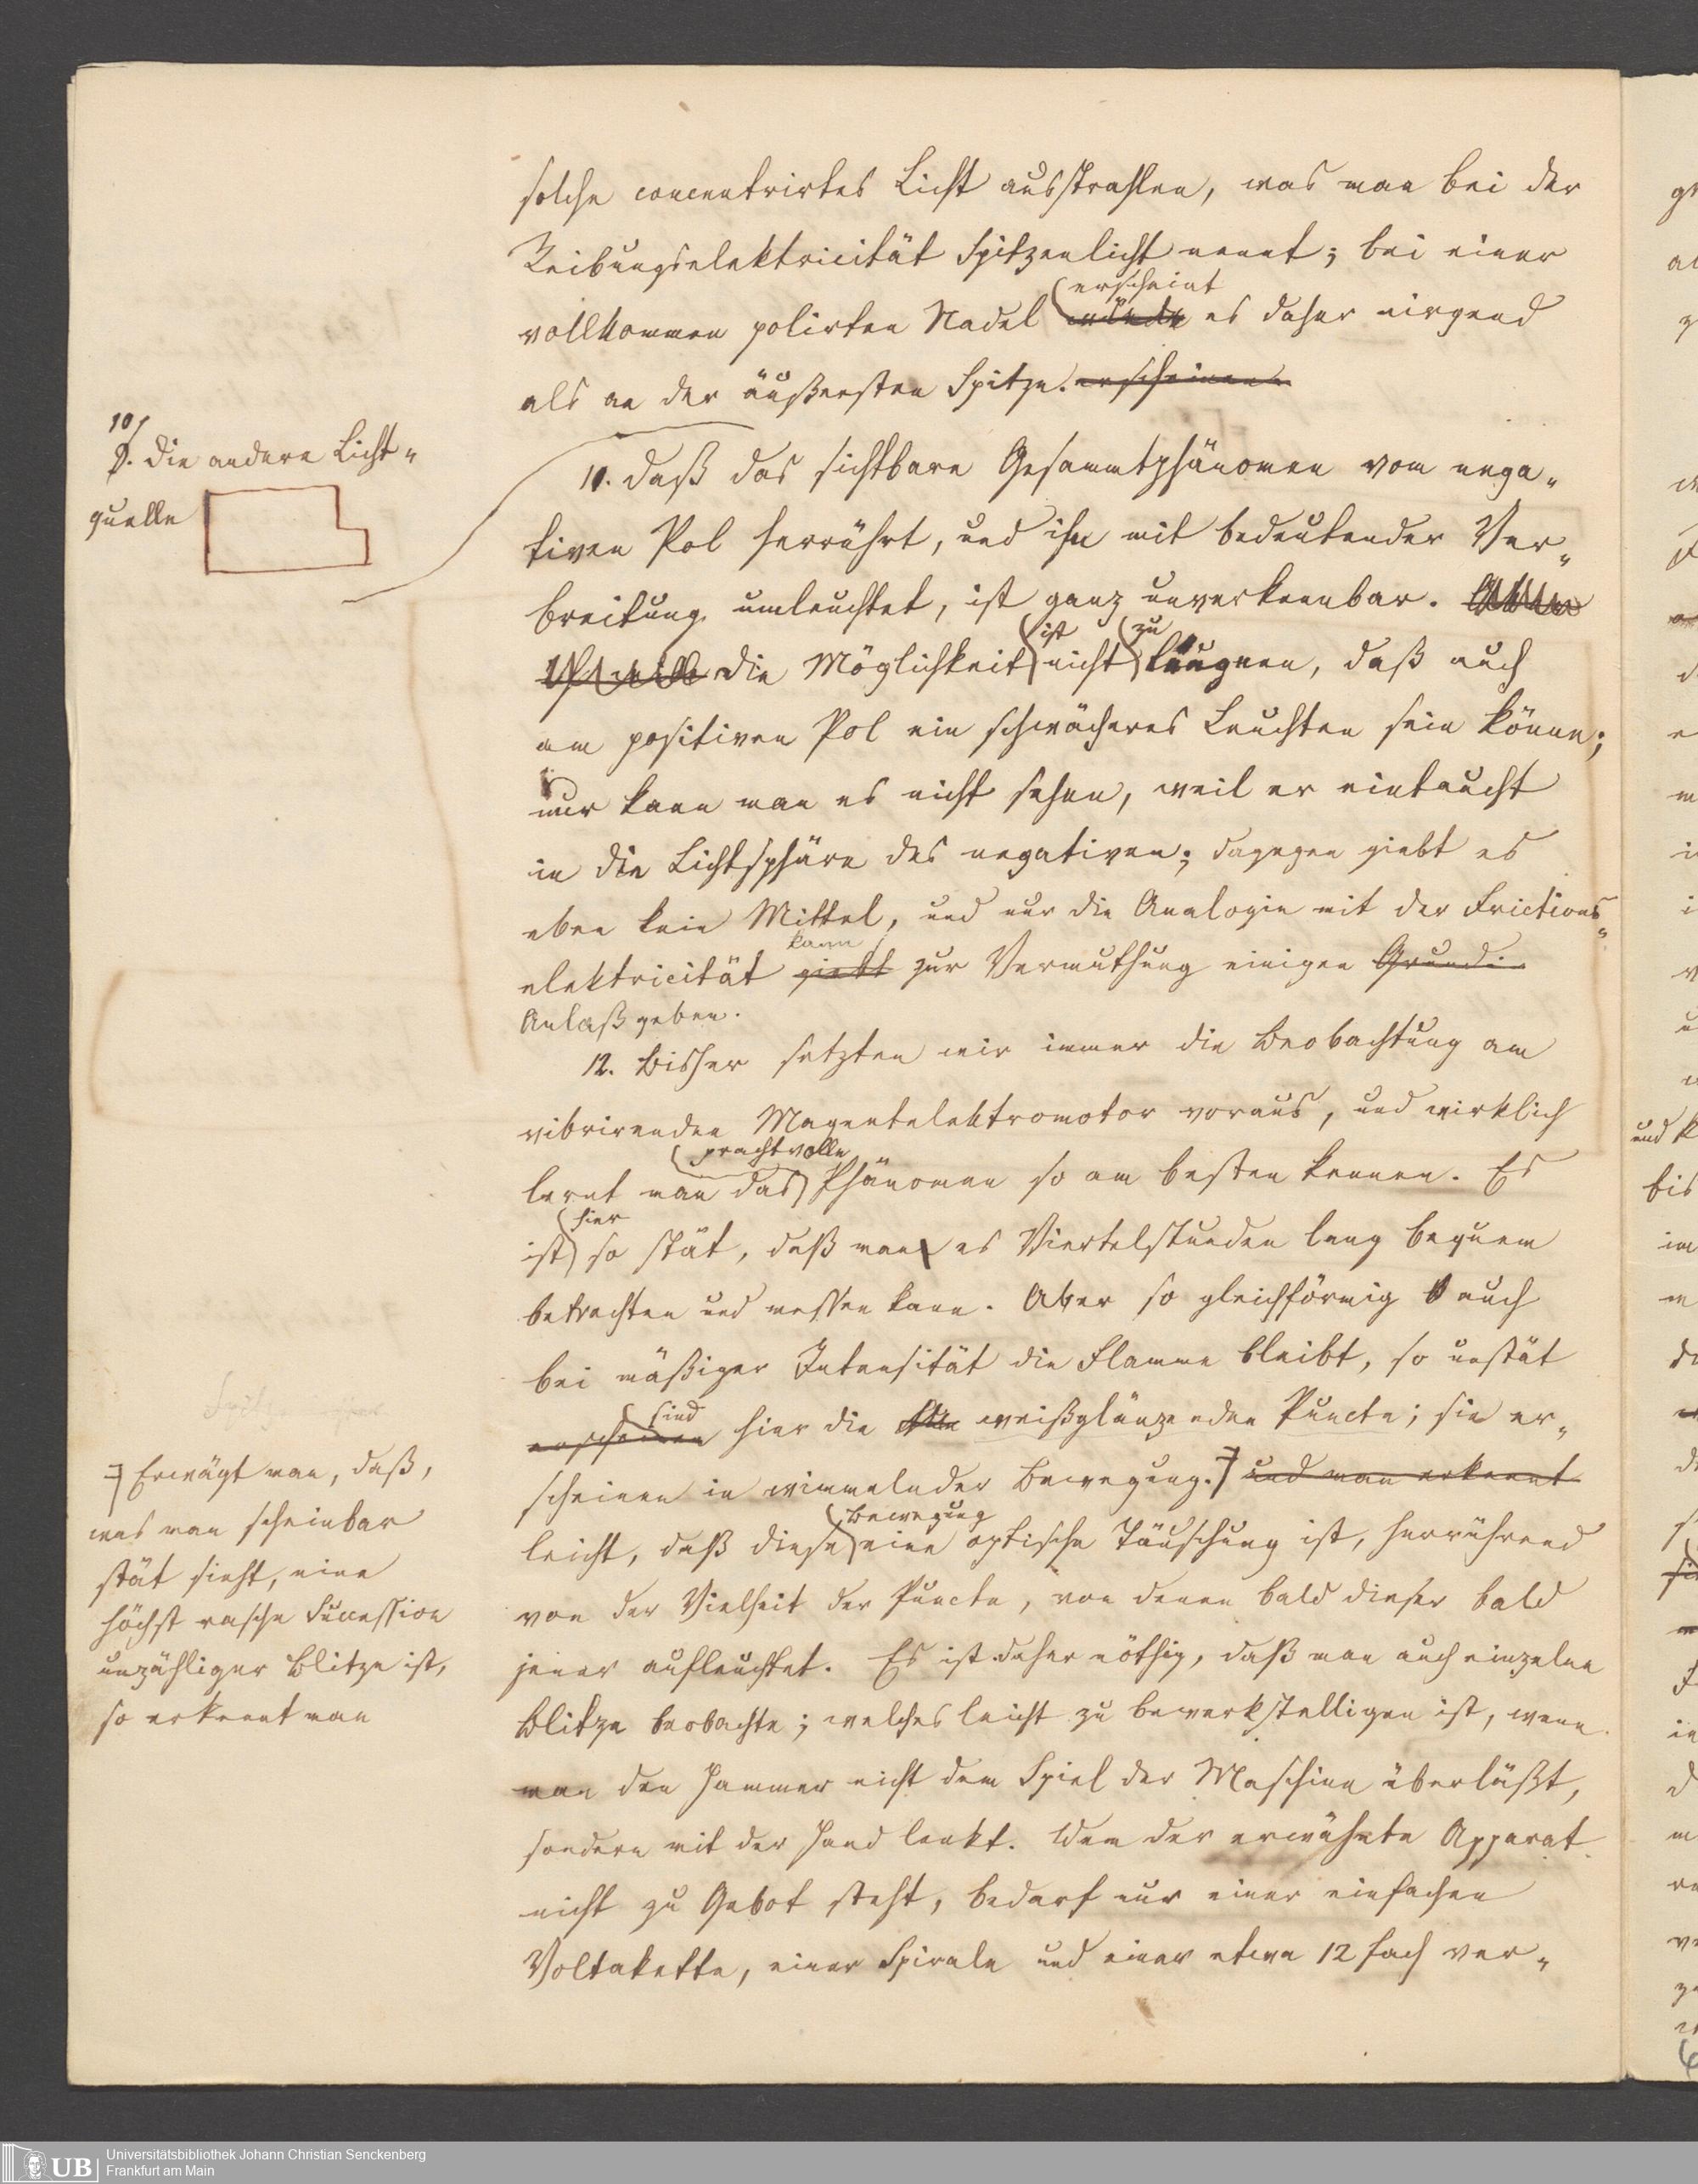 solche concentrirtes Licht ausstrahlen, was man bei der
Reibungselektricität Spitzenlicht nennt; bei einer
erscheint
vollkommen polirten Nadel würde es daher nirgend
als an der äußersten Spitze. erscheinen.
10/
9. Die andere Licht-
quelle
11. Daß das sichtbare Gesammtphänomen vom nega-
tiven Pol herrührt, und ihn mit bedeutender Ver-
breitung umleuchtet, ist ganz unverkennbar.
ist zu
die Möglichkeit nicht läugnen, daß auch
am positiven Pol ein schwächeres Leuchten sein könne;
nur kann man es nicht sehen, weil er eintaucht
in die Lichtsphäre des negativen; dagegen giebt es
eben kein Mittel, und nur die Analogie mit der Frictions-
kann
elektricität giebt zur Vermuthung einigen Grund.
Anlaß geben.
12. Bisher setzten wir immer die Beobachtung am
vibrirenden Magnetelektromotor voraus, und wirklich
prachtvolle
lernt man das Phänomen so am besten kennen. Es
hier
ist so stät, daß man es Viertelstunden lang bequem
betrachten und messen kann. Aber so gleichförmig auch
bei mäßiger Intensität die Flamme bleibt, so unstät
sind
erscheinen hier die weißglänzenden Puncte; sie er-
scheinen in wimmelnder Bewegung. und man erkennt
Bewegung
leicht, daß diese eine optische Täuschung ist, herrührend
von der Vielheit der Puncte, von denen bald dieser bald
jener aufleuchtet. Es ist daher nöthig, daß man auch einzelne
Blitze beobachte; welches leicht zu bewerkstelligen ist, wenn
man den Hammer nicht dem Spiel der Maschine überläßt,
sondern mit der Hand lenkt. Wem der erwähnte Apparat
nicht zu Gebot steht, bedarf nur einer einfachen
Voltakette, einer Spirale und einer etwa 12 fach ver-
Erwägt man, daß,
was man scheinbar
stät sieht, eine
höchst rasche Succession
unzähliger Blitze ist,
so erkennt man
und k
bis
UB
Universitätsbibliothek Johann Christian Senckenberg
Frankfurt am Main